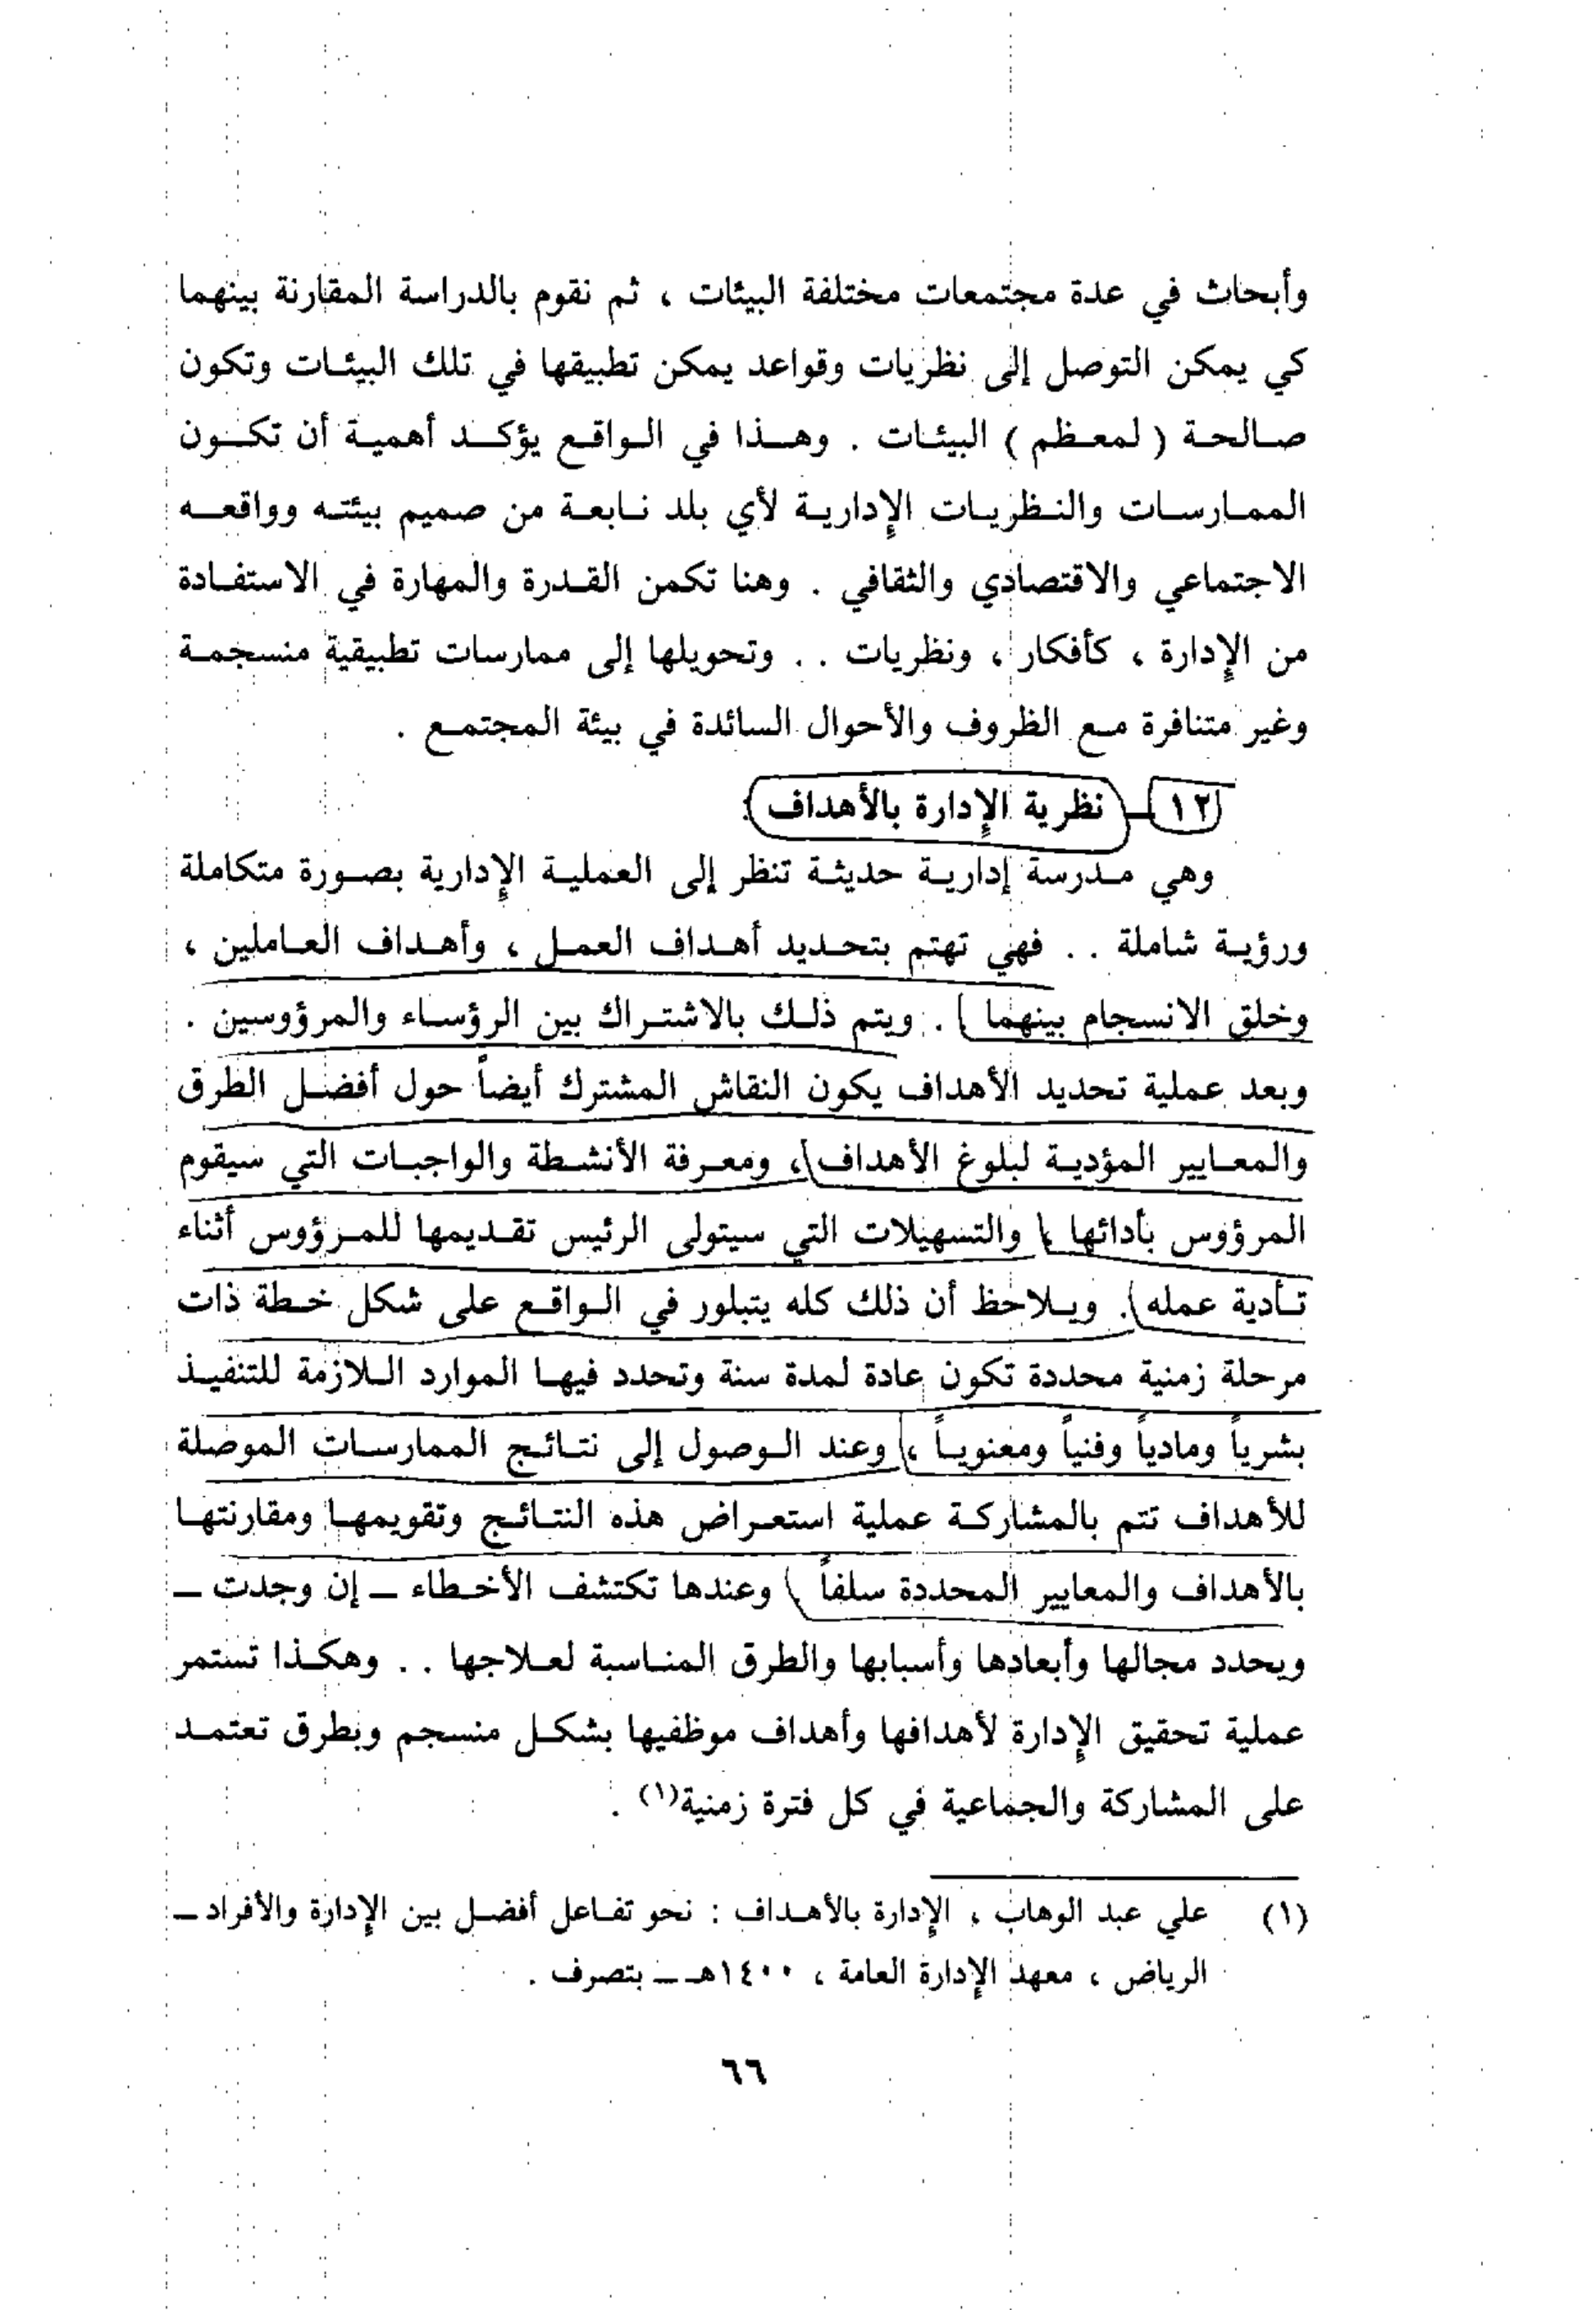 وأبحاث في عدة مجتمعات مختلفة البيئات ، ثم نقوم بالدراسة المقارنة بينهما
كي يمكن التوصل إلى نظريات وقواعد يمكن تطبيقها في تلك البيئات وتكون
صالحة ( لمعظم ) البيئات . وهذا في الواقع يؤكد أهمية أن تكون
الممارسات والنظريات الإدارية لأي بلد نابعة من صميم بيئته وواقعه
الاجتماعي والاقتصادي والثقافي . وهنا تكمن القدرة والمهارة في الاستفادة
من الإدارة ، كأفكار ، ونظريات . . وتحويلها إلى ممارسات تطبيقية منسجمة
وغير متنافرة مع الظروف والأحوال السائدة في بيئة المجتمع .
١٢ - نظرية الإدارة بالأهداف :
وهي مدرسة إدارية حديثة تنظر إلى العملية الإدارية بصورة متكاملة
ورؤية شاملة . . فهي تهتم بتحديد أهداف العمل ، وأهداف العاملين ،
وخلق الانسجام بينهما . ويتم ذلك بالاشتراك بين الرؤساء والمرؤوسين .
وبعد عملية تحديد الأهداف يكون النقاش المشترك أيضاً حول أفضل الطرق
والمعايير المؤدية لبلوغ الأهداف ، ومعرفة الأنشطة والواجبات التي سيقوم
المرؤوس بأدائها ، والتسهيلات التي سيتولى الرئيس تقديمها للمرؤوس أثناء
تأدية عمله . ويلاحظ أن ذلك كله يتبلور في الواقع على شكل خطة ذات
مرحلة زمنية محددة تكون عادة لمدة سنة وتحدد فيها الموارد اللازمة للتنفيذ
بشرياً ومادياً وفنياً ومعنوياً ، وعند الوصول إلى نتائج الممارسات الموصلة
للأهداف تتم بالمشاركة عملية استعراض هذه النتائج وتقويمها ومقارنتها
بالأهداف والمعايير المحددة سلفاً وعندها تكتشف الأخطاء ـ إن وجدت ـ
ويحدد مجالها وأبعادها وأسبابها والطرق المناسبة لعلاجها . . وهكذا تستمر
عملية تحقيق الإدارة لأهدافها وأهداف موظفيها بشكل منسجم وبطرق تعتمد
على المشاركة والجماعية في كل فترة زمنية(١) .
(١) علي عبد الوهاب ، الإدارة بالأهداف : نحو تفاعل أفضل بين الإدارة والأفراد ـ
الرياض ، معهد الإدارة العامة ، ١٤٠٠هـ ـ بتصرف .
٦٦